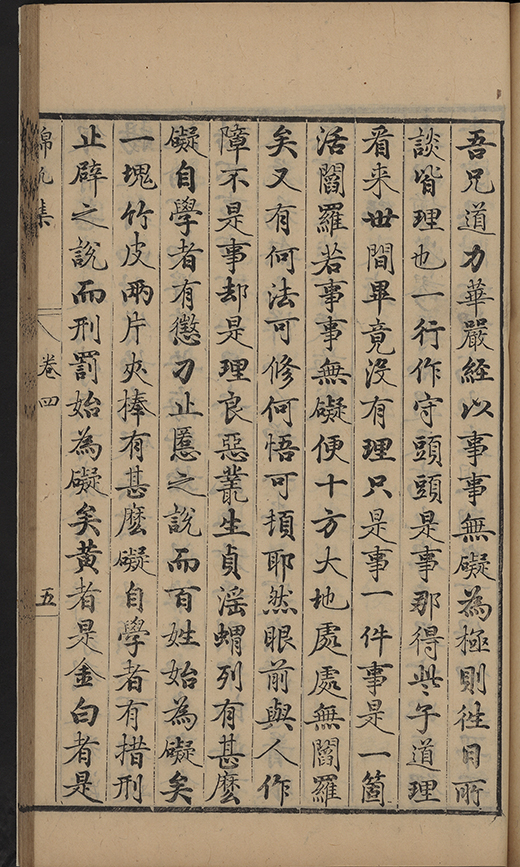 吾兄道力華嚴經以事事無礙為極則徃日所
談皆理也一行作守頭頭是事那得些子道理
看来世間畢竟沒有理只是事一件事是一箇
活閻羅若事事無礙便十方大地處處無閻羅
矣又有何法可修何悟可頓耶然眼前與人作
障不是事却是理良惡叢生貞淫蝟列有甚麽
礙自學者有懲刁止慝之說而百姓始為礙矣
一塊竹皮兩片夾棒有甚麽礙自學者有措刑
止辟之說而刑罰始為礙矣黃者是金白者是
錦帆集 卷四 五